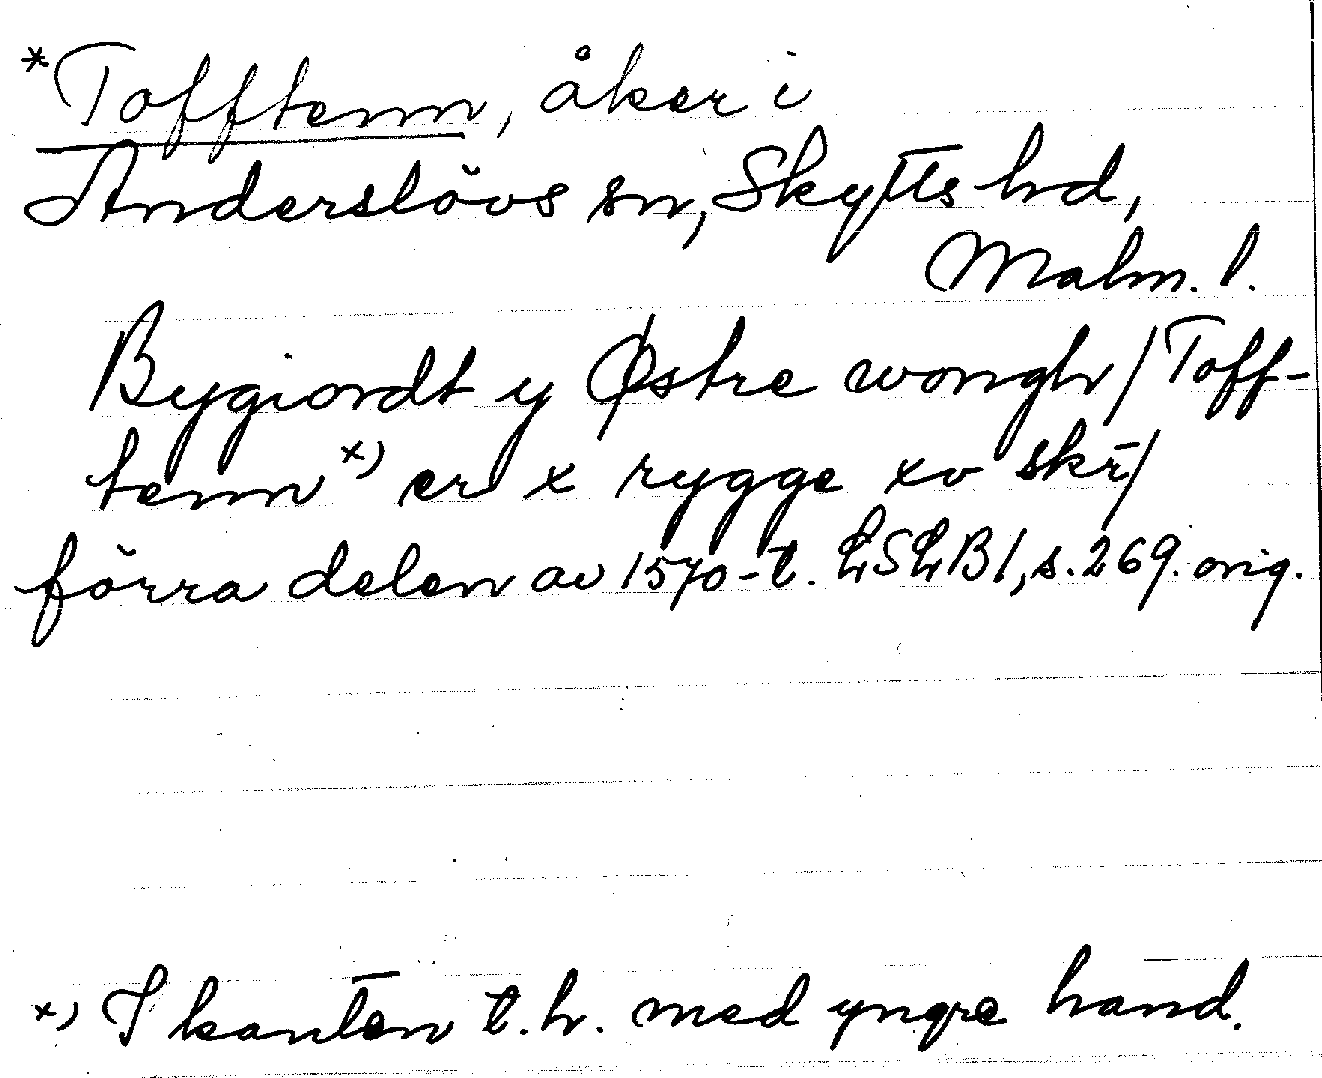 *Tofftenn, åker i
Anderslövs sn, Skytts hd,
Malm. l.
Bygiordt y Østre wongh / Toff-
tenn x) er x rygge xv skr̄/
förra delen av 1570-t. LSLB1, s. 269. orig.
x) I kanten t.h. med yngre hand.